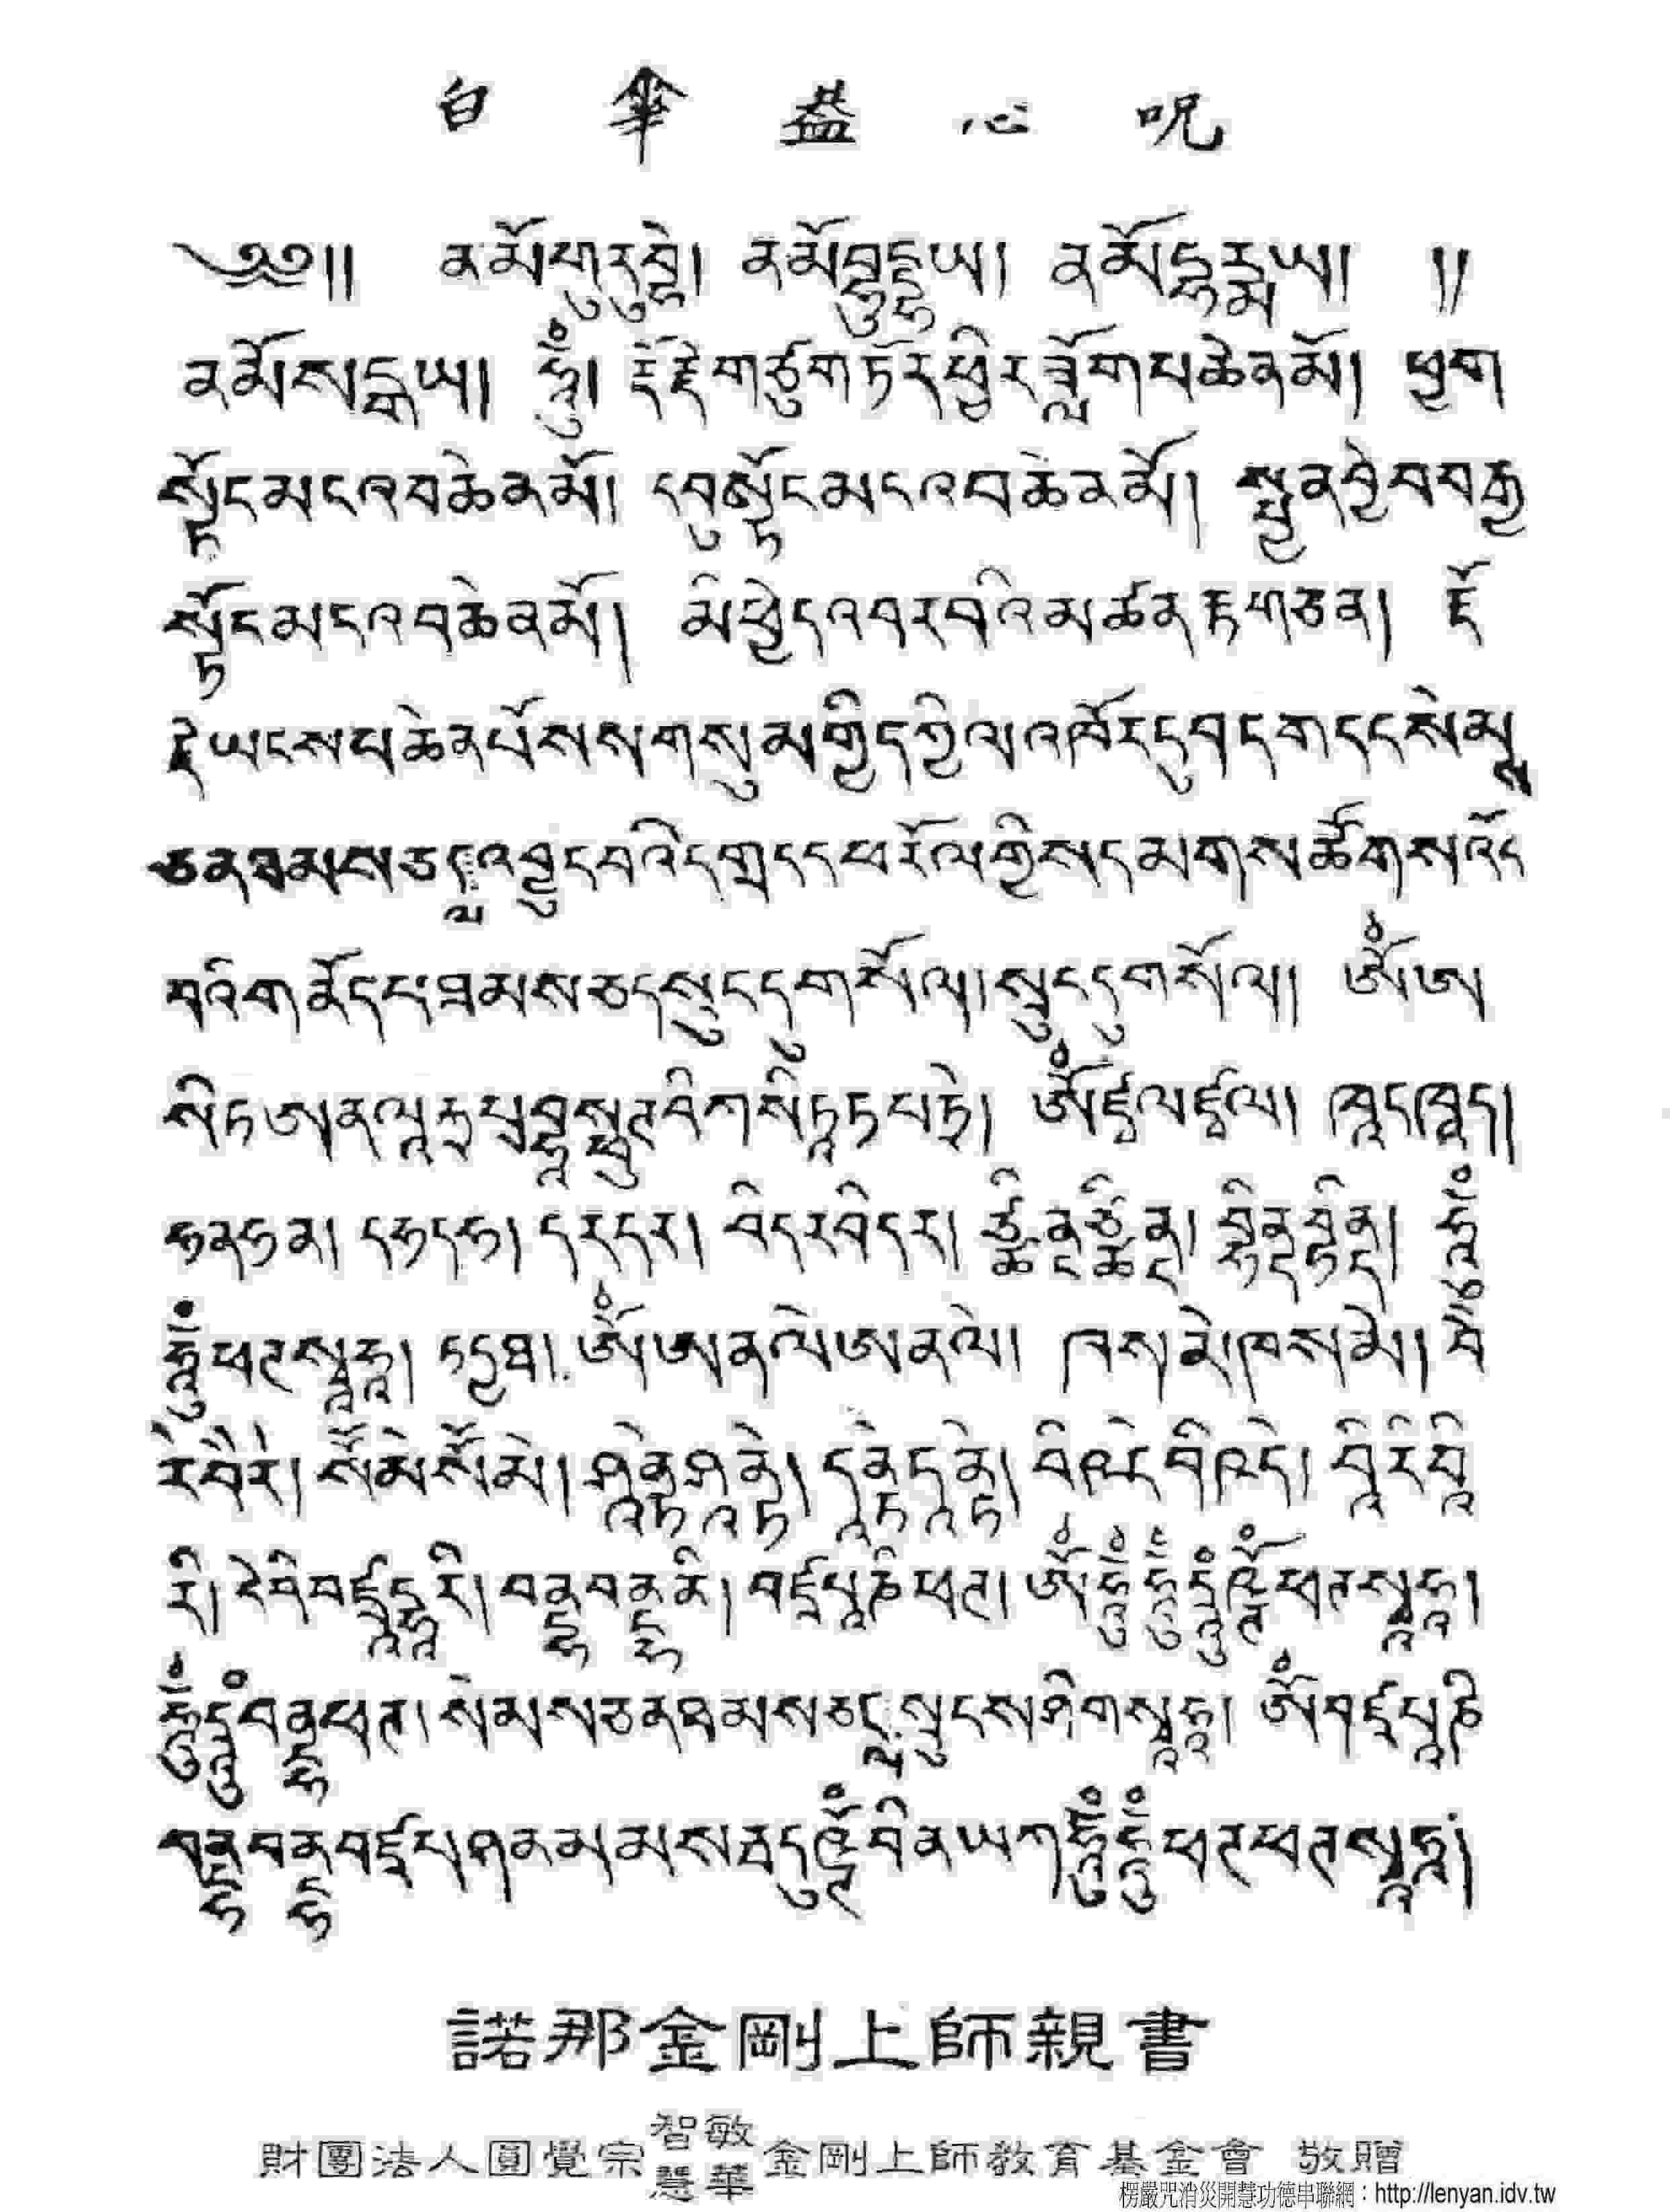 白傘蓋心呪
༄༅།། ན་མོ་གུ་རུ་བྷེ། ན་མོ་བུདྡྷ་ཡ། ན་མོ་དྷརྨ་ཡ། །།
ནམོསངྒྷཡ། ཧཱུྂ། རྡོརྗེགཙུགཏོརཕྱིརཟློགཔཆེནམོ། ཕྱག
སྟོངམངའབཆེནམོ། དབུསྟོངམངའབཆེནམོ། སྤྱནབྱེབབརྒྱ
སྟོངམངའབཆེནམོ། མིཕྱེདའབརབའིམཚནརྟགཅན། རྡོ
རྗེཡངསཔཆེནཔོསསགསུམགྱིདཀྱིལའཁོརདབདགདངསེམས
ཅནཐམསཅདལའབྱུངབའིདགྲདདཕརོལགྱིསདམགསཚོགསའོང
བའིགནོདཔཐམསཅདསྲུངདུགསོལ།སྲུངདུགསོལ། ཨོྂཨ
སིཏཨནལཱརྐཔྲབྷཱསྥུཊབིཀསིཏཱཏཔཏྲེ། ཨོྂཛྭལཛྭལ། ཁཱདཁཱད།
ཧནཧན། དཧདཧ། དརདར། བིདརབིདར། ཙྪིནྡཙྪིནྡ། བྷིནྡབྷིནྡ། ཧཱུྂ
ཧཱུྂཕཊསྭཱཧཱ། ཏདྱཐ། ཨོྂཨནལེཨནལེ། ཁསམེཁསམེ། བཻ
རེབཻརེ། སོམེསོམེ། ཤཱནྟེཤཱནྟེ། དཱནྟེདཱནྟེ། བིཥདེབིཥདེ། བཱིརེབཱི
རི། དེབིབཛྲཱདྷཱརི། བནྡྷབནྡྷནི། བཛྲཔཱཎིཕཊ། ཨོྂཧཱུྂཧཱུྂདྲཱུྂཥྚོྂཕཊསྭཱཧཱ།
ཧཱུྂདྲཱུྂབནྡྷཕཊ། སེམསཅནཐམསཅདལསྲུངསཤིགསྭཱཧཱ། ཨོྂབཛྲཔཱཎི
བནྡྷབནྡྷབཛྲཔཤནམམསརྦདུཥྚྂབིནཡཀཧཱུྂཧཱུྂཕཊཕཊསྭཱཧཱ།
諾那金剛上師親書
財團法人圓覺宗智敏慧華金剛上師教育基金會 敬贈
楞嚴咒消災開慧功德串聯網：http://lenyan.idv.tw